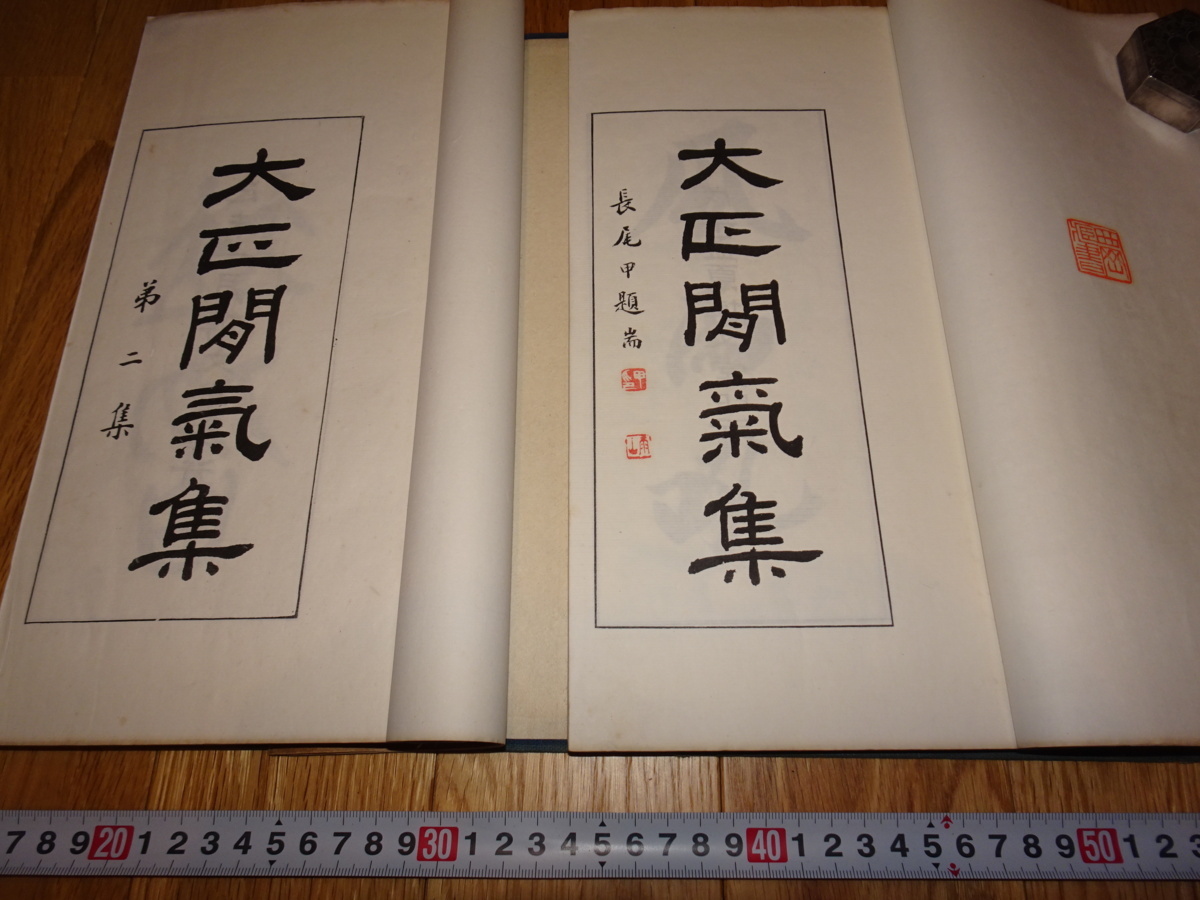 大正閒氣集
長尾甲題耑
大正閒氣集
弟二集
7 8 9 20 1 2 3 4 5 6 7 8 9 30 1 2 3 4 5 6 7 8 9 40 1 2 3 4 5 6 7 8 9 50 1 2 3